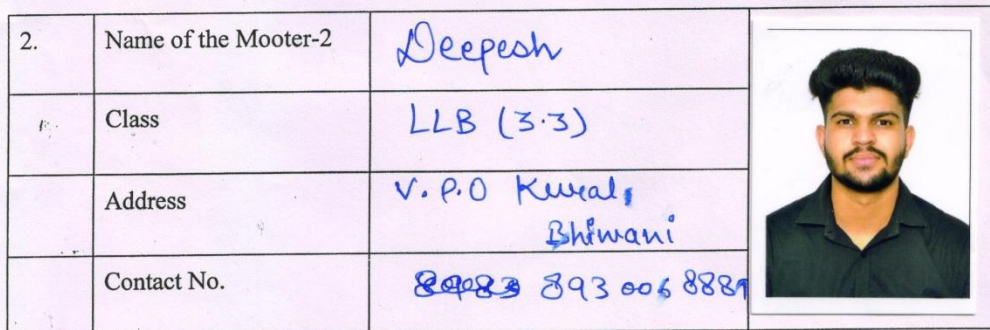 2. Name of the Mooter-2 Deepesh
Class LLB (3.3)
Address V.P.O Kural,
Bhiwani
Contact No. 893 006 8889